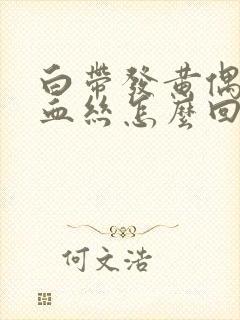 白帶發黃偶
血絲怎麼回
何文浩